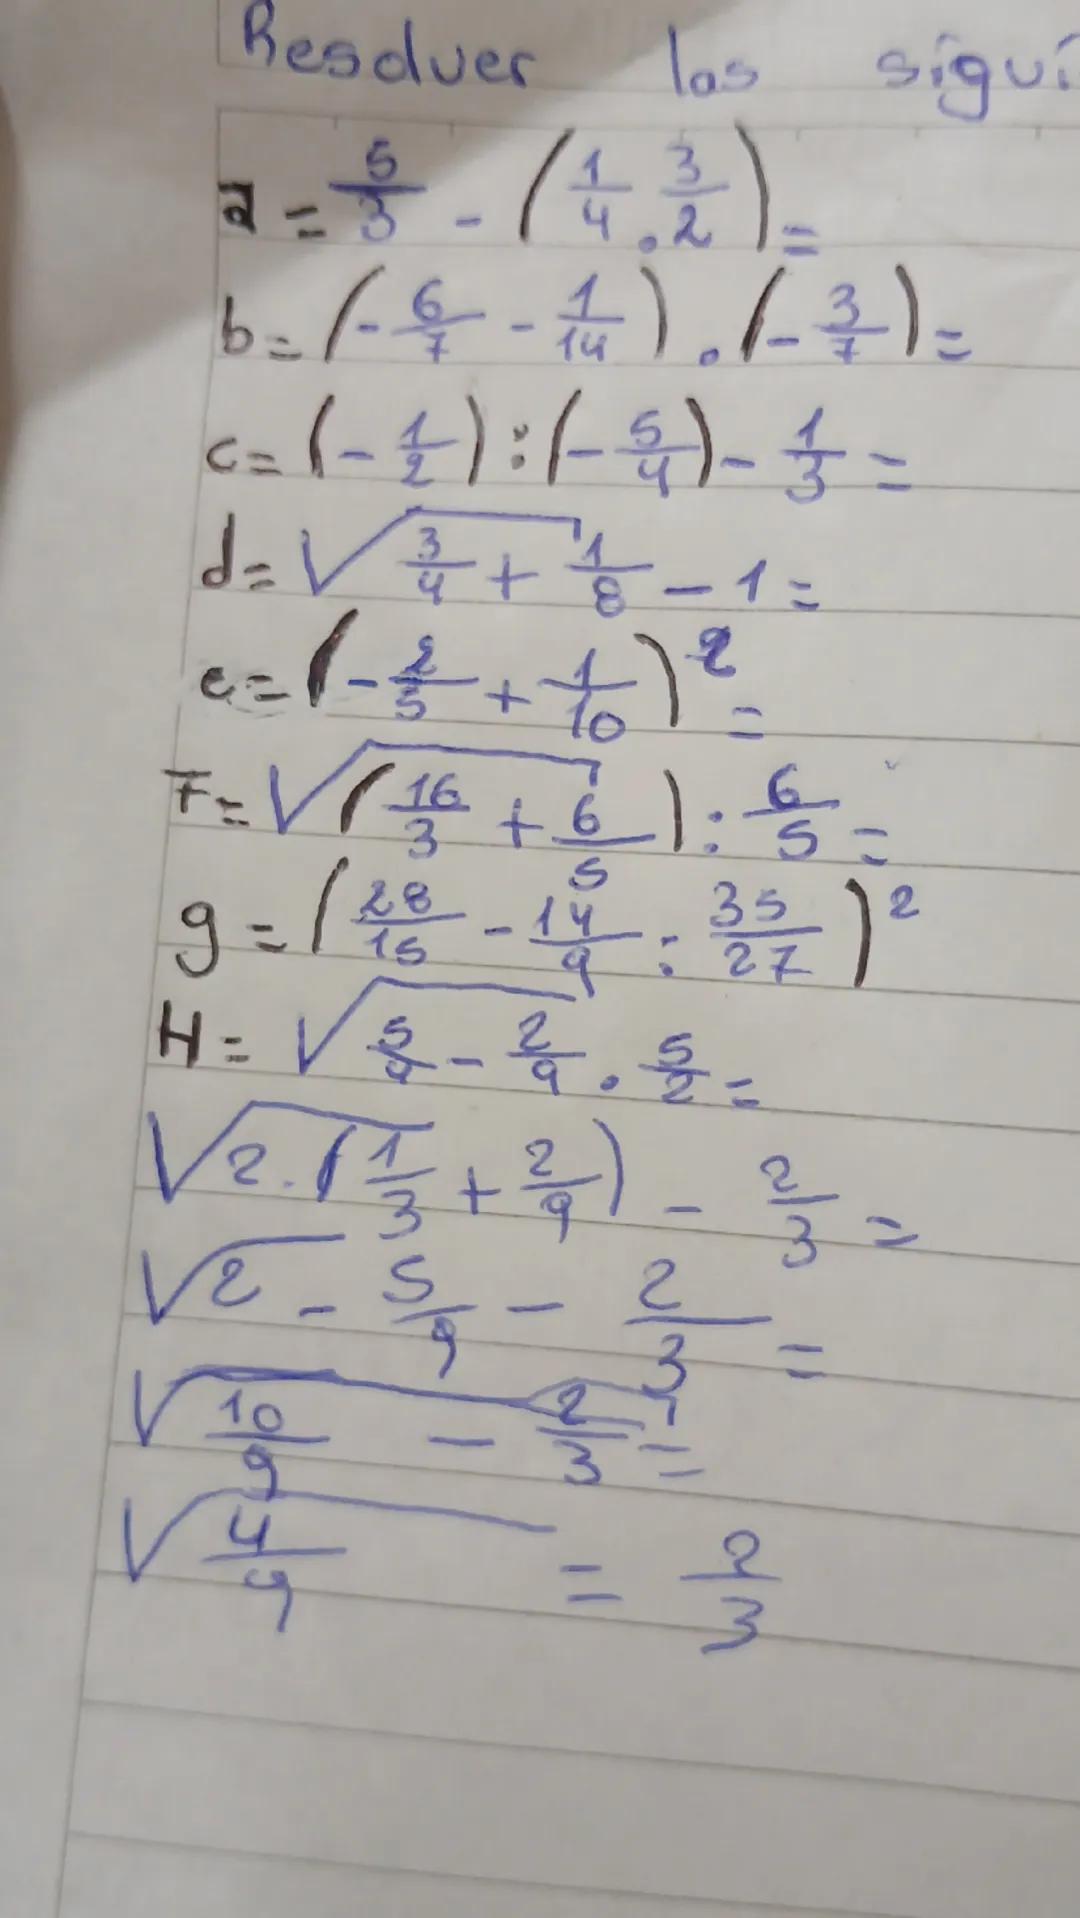 Resolver las sigui
a = 5/3 - (1/4 . 3/2) =
b = (- 6/7 - 1/14) . (- 3/7) =
c = (- 1/2) : (- 5/4) - 1/3 =
d = √3/4 + 1/8 - 1 =
e = (- 2/5 + 1/10)² =
F = √(16/3 + 6/5) : 6/5 =
g = (28/15 - 14/9 : 35/27)²
H = √5/9 - 2/9 . 5/2 =
√2 . (1/3 + 2/9) - 2/3 =
√2 - 5/9 - 2/3 =
√10/9 - 2/3 =
√4/9 = 2/3